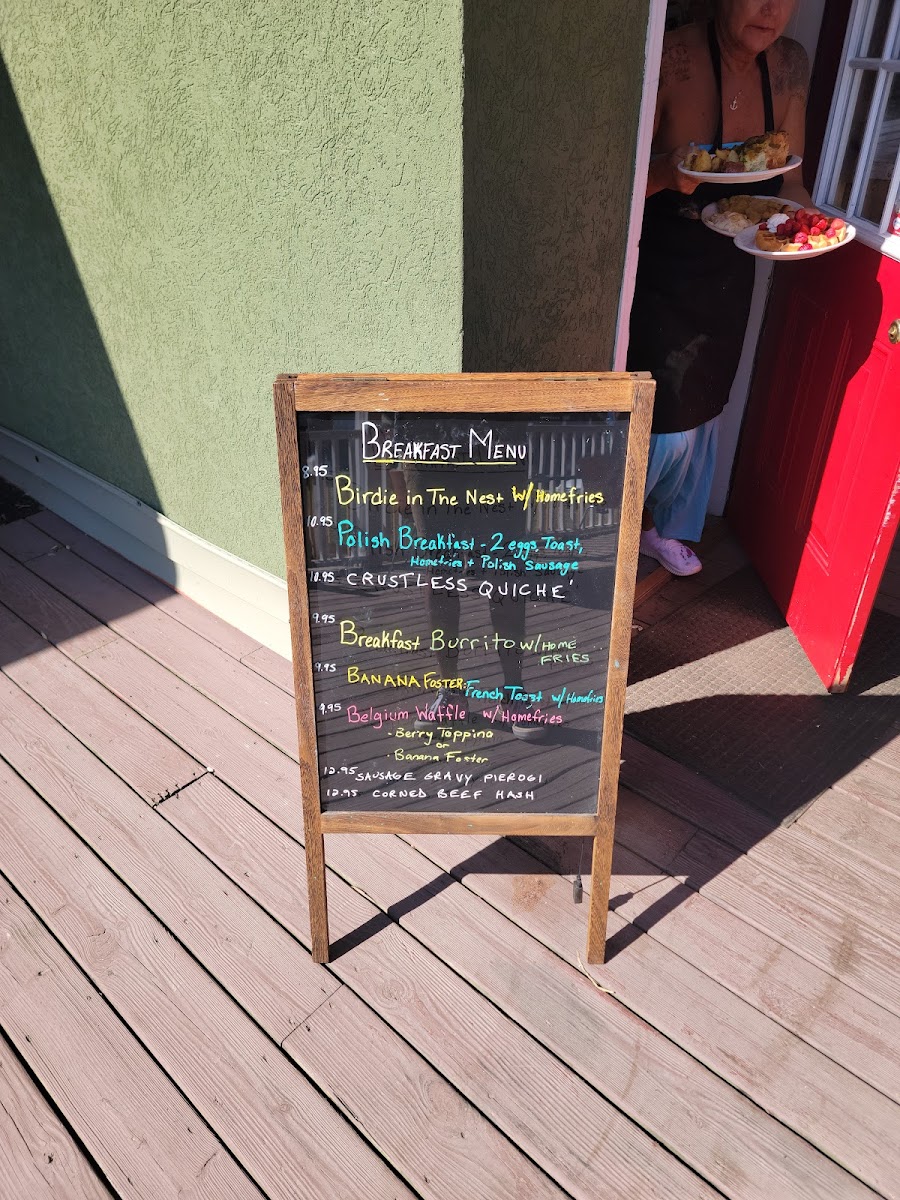 BREAKFAST MENU
8.95
Birdie in The Nest w/ Homefries
10.95
Polish Breakfast - 2 eggs, Toast,
Homefries + Polish Sausage
10.95 CRUSTLESS QUICHE'
9.95
Breakfast Burrito w/ HOME
FRIES
9.95
BANANA FOSTER: French Toast w/ Homefries
9.95
Belgium Waffle w/ Homefries
- Berry Topping
or
- Banana Foster
12.95 SAUSAGE GRAVY PIEROGI
12.95 CORNED BEEF HASH